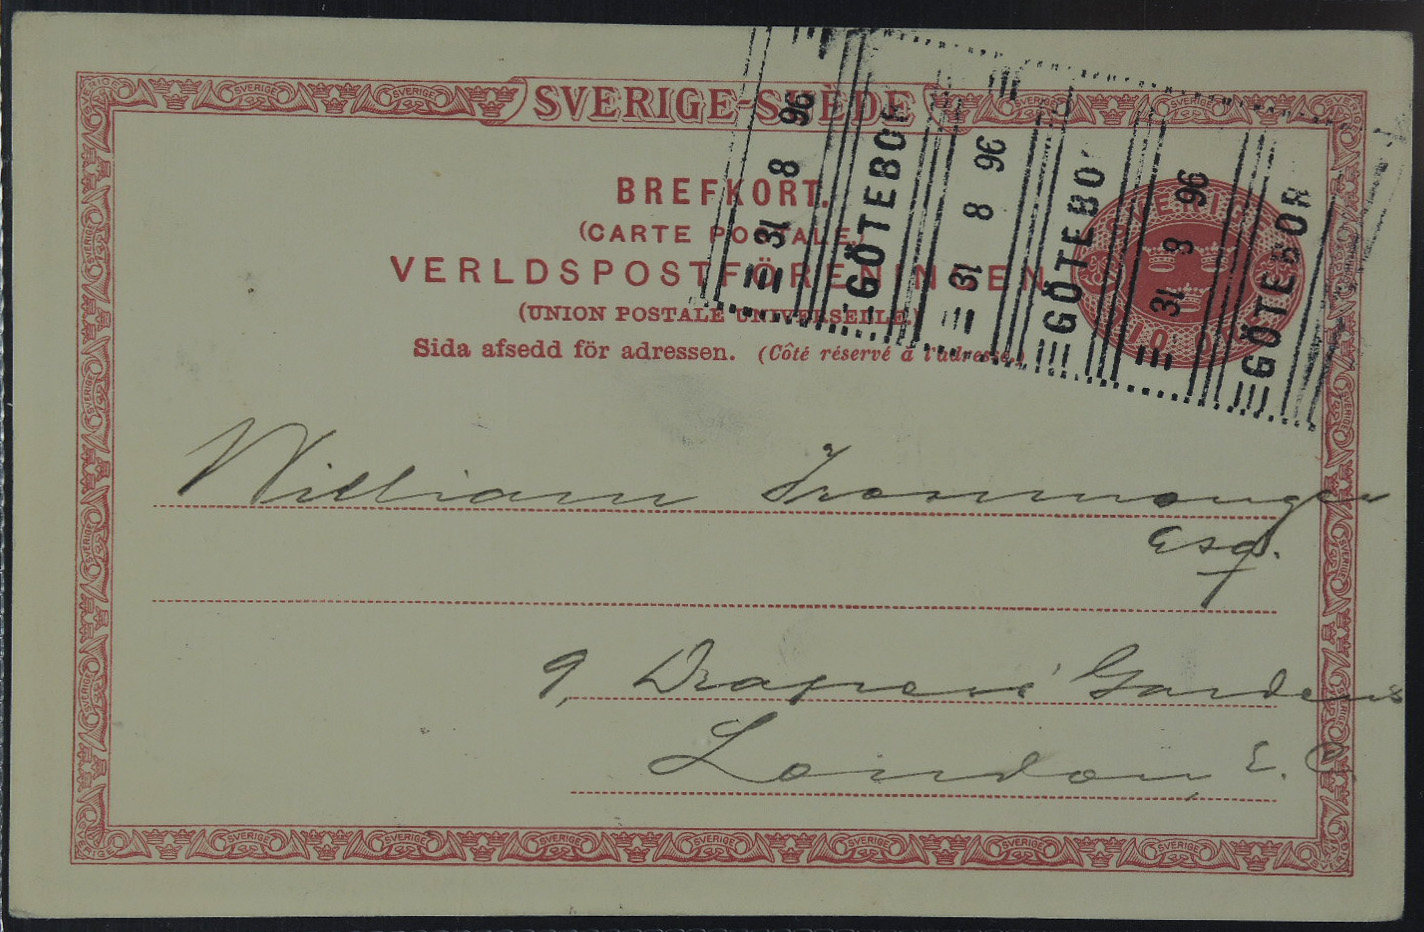 SVERIGE-SUÈDE
BREFKORT.
(CARTE POSTALE)
VERLDSPOSTFÖRENINGEN
(UNION POSTALE UNIVERSELLE)
Sida afsedd för adressen. (Côté réservé à l'adresse.)
31 8 96
GÖTEBOR
31 8 96
GÖTEBO
31 8 96
GÖTEBOR
William Ironmonger
Esq.
9, Drapers' Gardens
London, E. C.